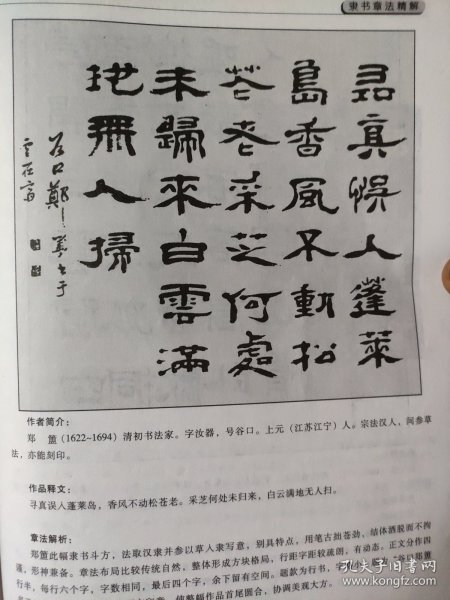 隶书章法精解
尋真悞人蓬萊
島香風不動松
芲老采芝何處
未歸來白雲滿
地無人掃
谷口鄭簠書于
作者简介：
郑 簠（1622~1694）清初书法家。字汝器，号谷口。上元（江苏江宁）人。宗法汉人，间参草
法，亦能刻印。
作品释文：
寻真误人蓬莱岛，香风不动松苍老。采芝何处未归来，白云满地无人扫。
章法解析：
郑簠此幅隶书斗方，法取汉隶并参以草人隶写意，别具特点，用笔古拙苍劲，结体洒脱而不拘
谨，形神兼备。章法布局比较传统自然，整体形成方块格局，行距字距较疏朗，有动态。正文分作四
行半，每行六个字，字数相同，最后四个字，余下留有空间。题款为行书，
使整幅作品首尾圆合，协调美观大方。
孔夫子旧书网